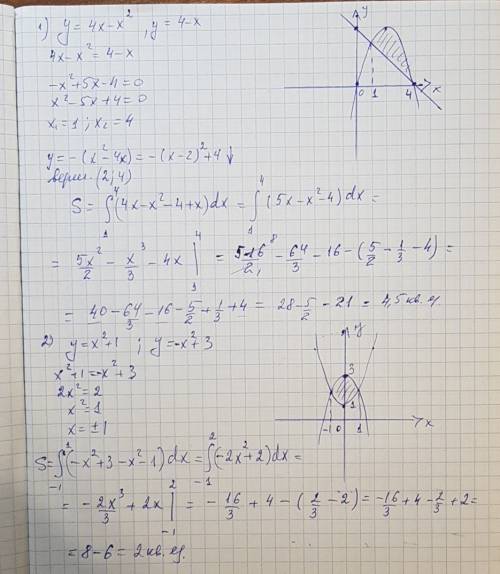 1) y = 4x-x² , y = 4-x
4x-x² = 4-x
-x²+5x-4=0
x²-5x+4=0
x₁=1 ; x₂=4
y
x
0 1 4
y=-(x²-4x)=-(x-2)²+4↓
верш. (2;4)
S = ∫₁⁴(4x-x²-4+x)dx = ∫₁⁴(5x-x²-4)dx =
= 5x²/2 - x³/3 - 4x |₁⁴ = 5·16⁸/2₁ - 64/3 - 16 - (5/2 - 1/3 - 4) =
= 40 - 64/3 - 16 - 5/2 + 1/3 + 4 = 28 - 5/2 - 21 = 4,5 кв. ед
2) y=x²+1 ; y=-x²+3
x²+1=-x²+3
2x²=2
x²=1
x=±1
y
3
1
-1 0 1 x
S=∫₋₁¹(-x²+3-x²-1)dx=∫₋₁²(-2x²+2)dx=
= -2x³/3 + 2x |₋₁² = -16/3 + 4 - (2/3 - 2) = -16/3 + 4 - 2/3 + 2 =
= 8-6 = 2 кв. ед.